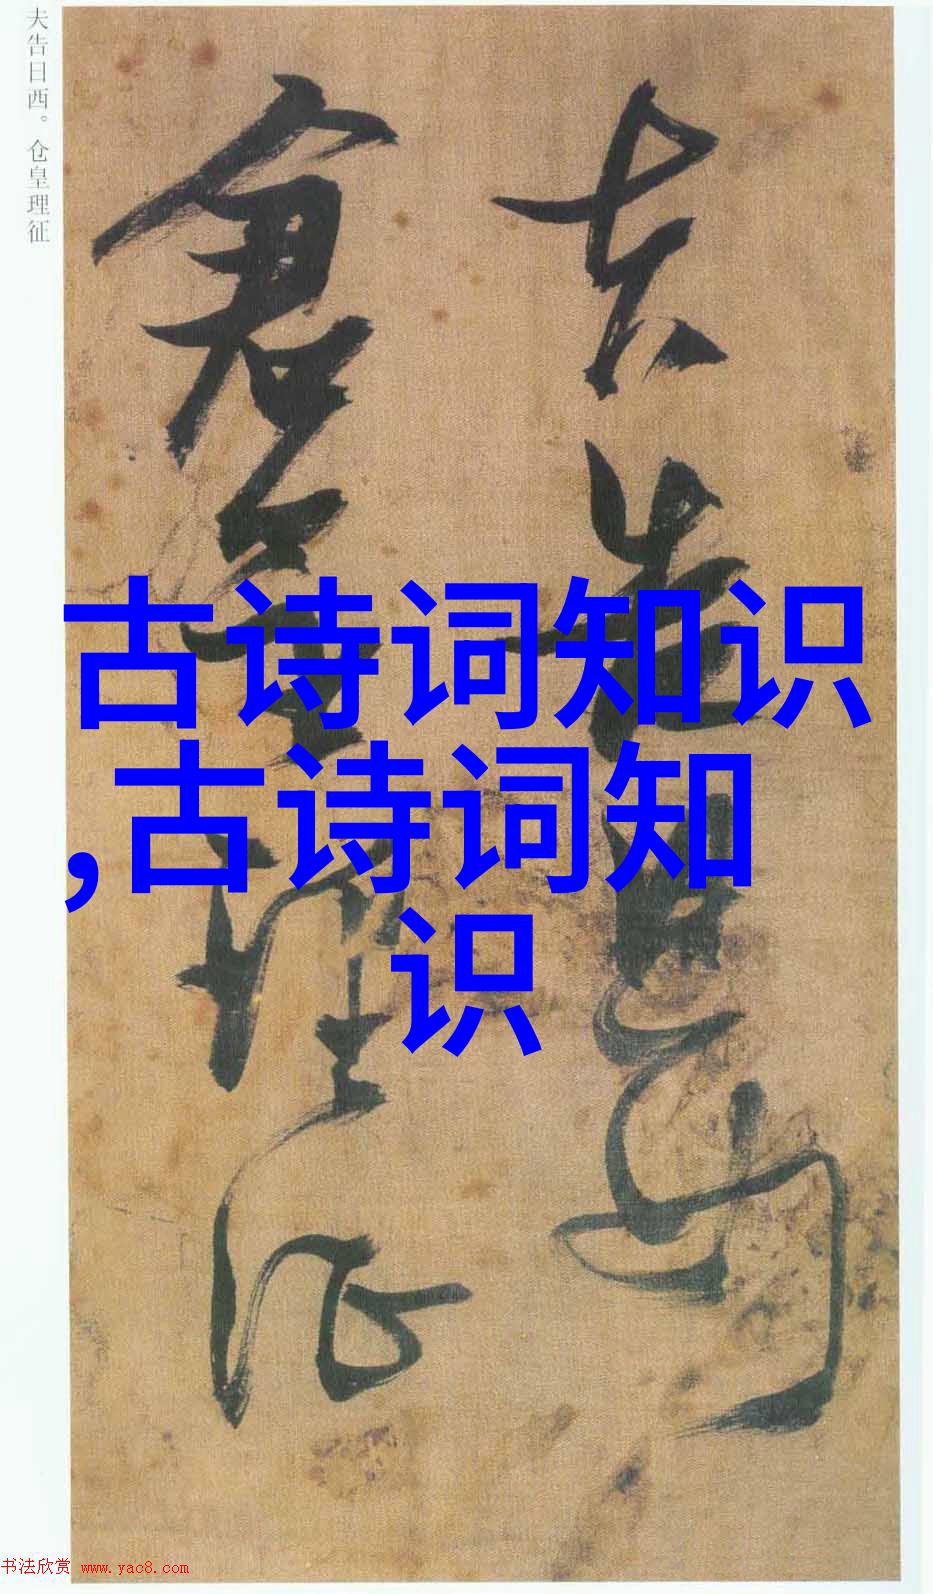 夫告日西。仓皇理征
夫告日西
倉皇理征
古诗词知识
,古诗词知
识
书法欣赏 www.yac8.com